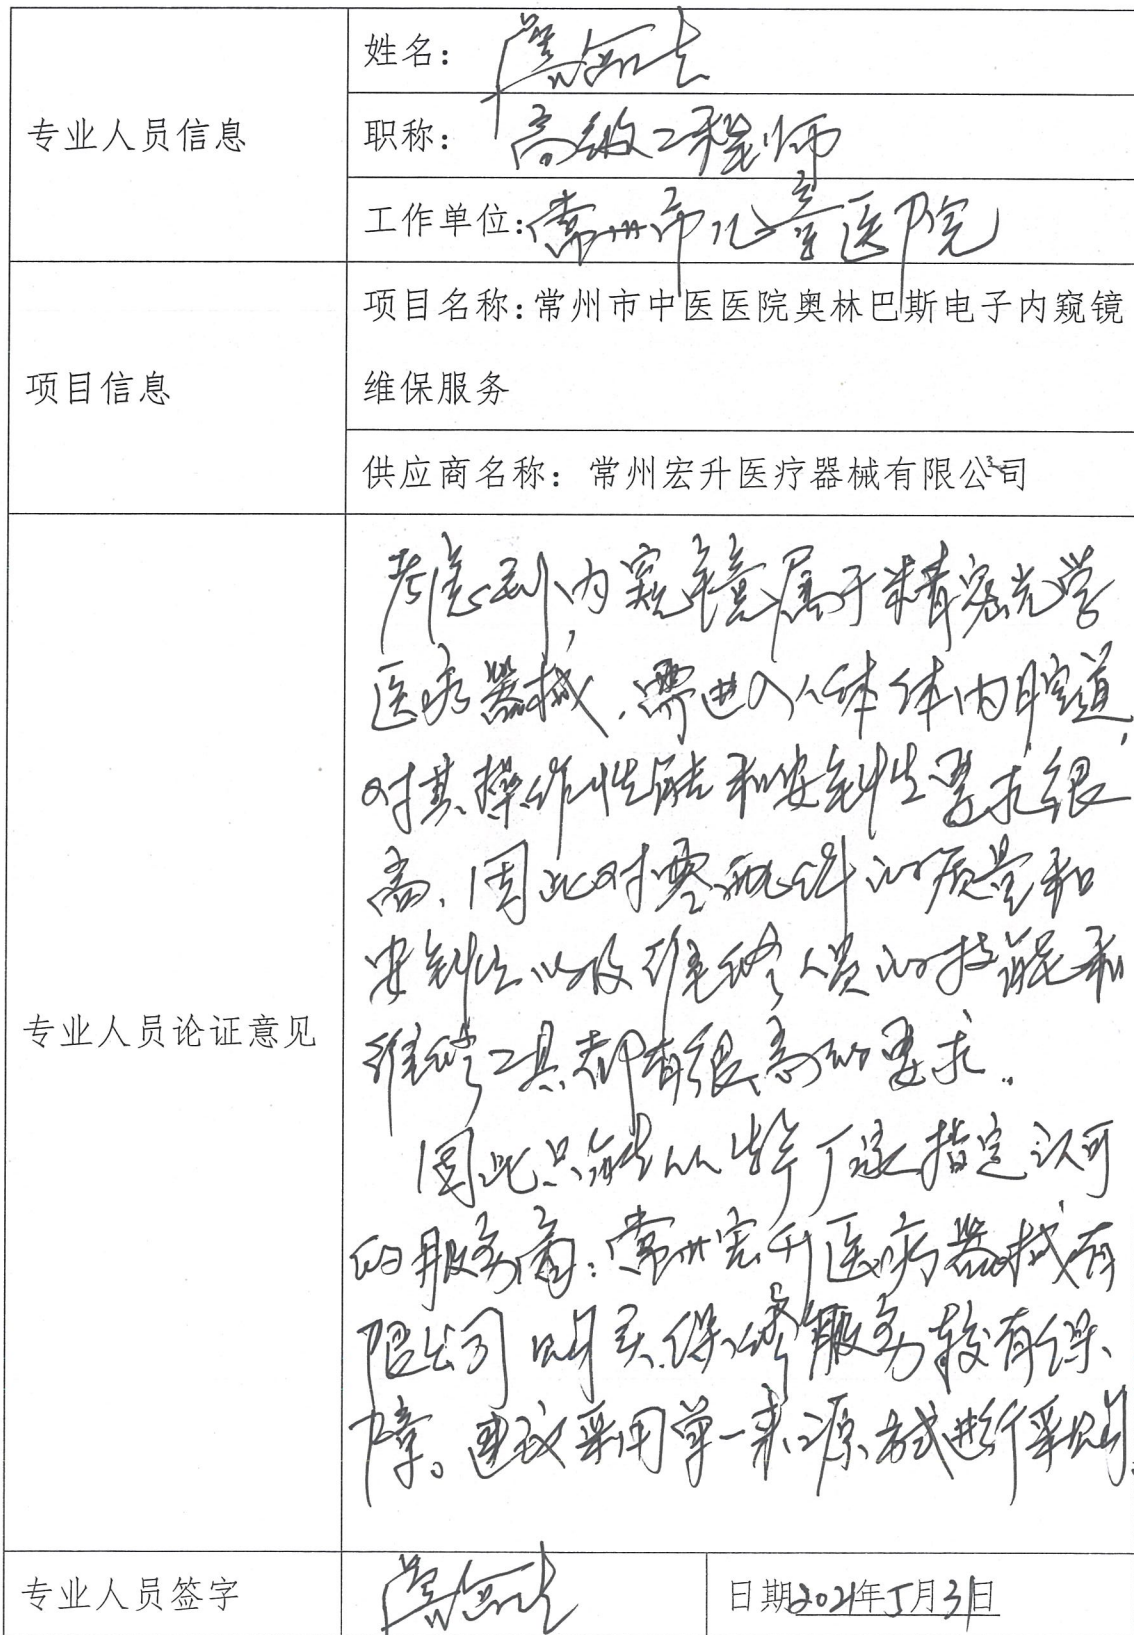 专业人员信息
姓名：
职称：高级工程师
工作单位：常州市儿童医院
项目信息
项目名称：常州市中医医院奥林巴斯电子内窥镜
维保服务
供应商名称：常州宏升医疗器械有限公司
专业人员论证意见
考虑到内窥镜属于精密光学
医疗器械，需进入人体体内腔道，
对其操作性能和安全性要求很
高，因此对零配件的质量和
安全性以及维修人员的技能和
维修工具都有很高的要求。
因此只能从生产厂家指定认可
的服务商：常州宏升医疗器械有
限公司购买保修服务较有保
障。建议采用单一来源方式进行采购。
专业人员签字
日期2021年5月31日